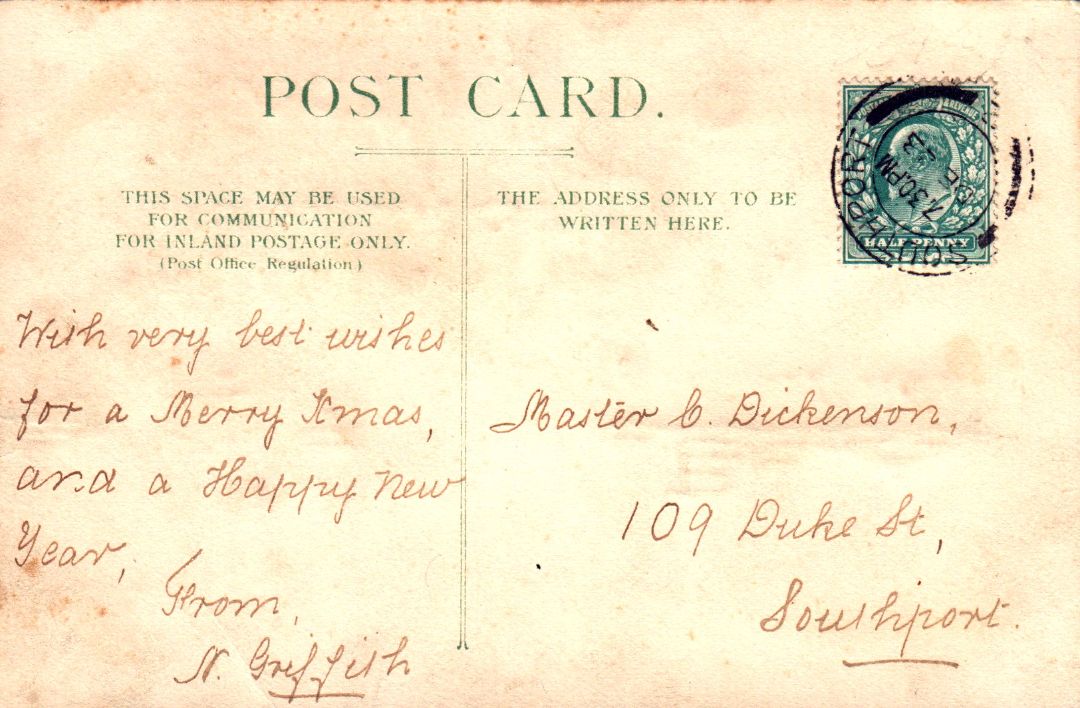 POST CARD.
THIS SPACE MAY BE USED
FOR COMMUNICATION
FOR INLAND POSTAGE ONLY.
(Post Office Regulation)
THE ADDRESS ONLY TO BE
WRITTEN HERE.
POSTAGE REVENUE
HALF PENNY
SOUTHPORT
7.30 PM
DE 23
With very best wishes
for a Merry Xmas,
and a Happy New
Year,
From,
N. Griffith
Master C. Dickenson,
109 Duke St,
Southport.